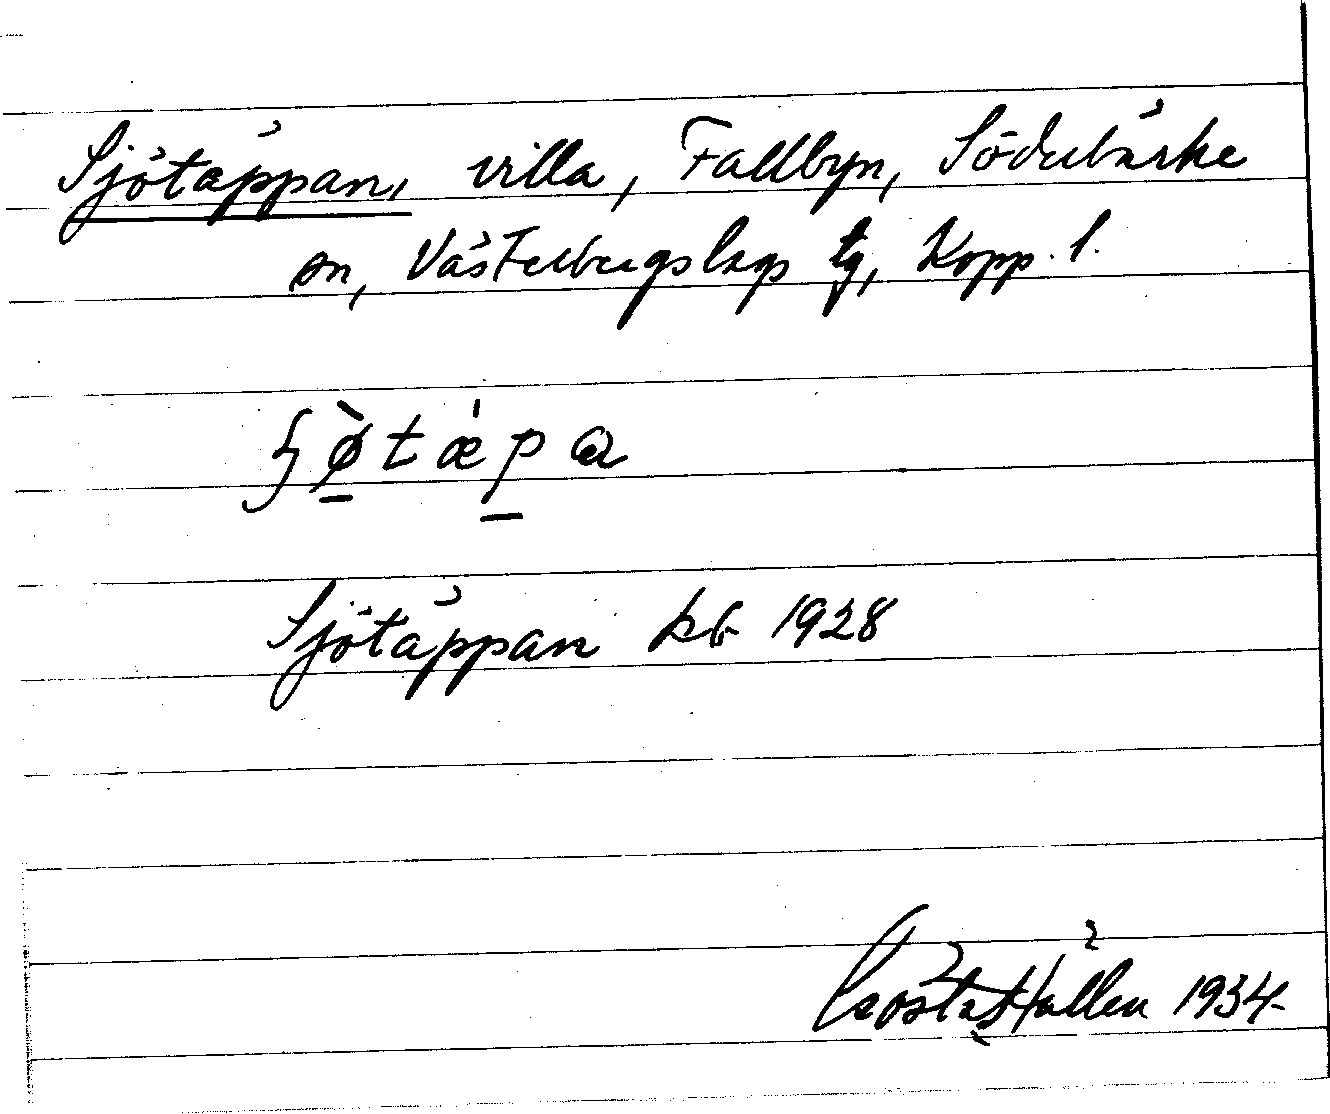 Sjötäppan, villa, Fallbyn, Söderbärke
sn, Västerbergslags tg, Kopp. l.
ʃø̀tæ̍pa
Sjötäppan kb 1928
Gösta Hallén 1934